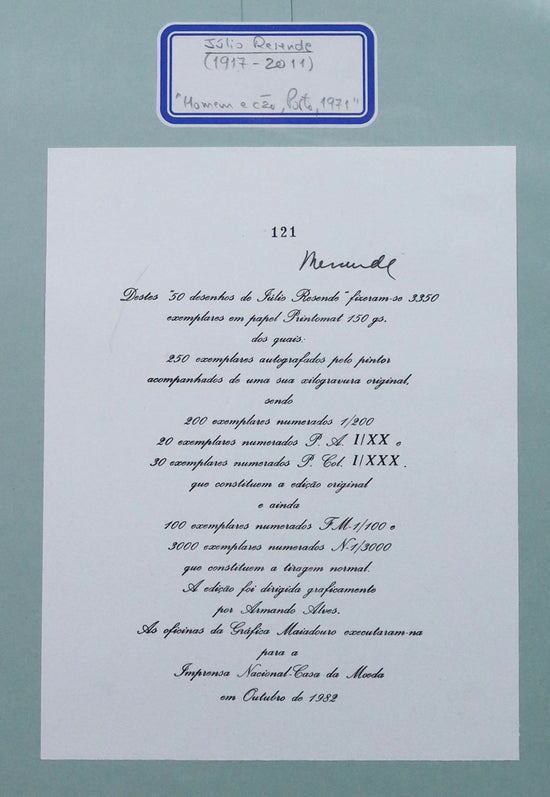 Júlio Resende
(1917-2011)
"Homem e cão, Porto, 1971"
121
Resende
Destes "50 desenhos de Júlio Resende" fizeram-se 3350
exemplares em papel Printomat 150 gs.
dos quais:
250 exemplares autografados pelo pintor
acompanhados de uma sua xilogravura original,
sendo
200 exemplares numerados 1/200
20 exemplares numerados P. A. I/XX e
30 exemplares numerados P. Col. I/XXX.
que constituem a edição original
e ainda
100 exemplares numerados FM-1/100 e
3000 exemplares numerados N-1/3000
que constituem a tiragem normal.
A edição foi dirigida graficamente
por Armando Alves.
As oficinas da Gráfica Maiadouro executaram-na
para a
Imprensa Nacional-Casa da Moeda
em Outubro de 1982